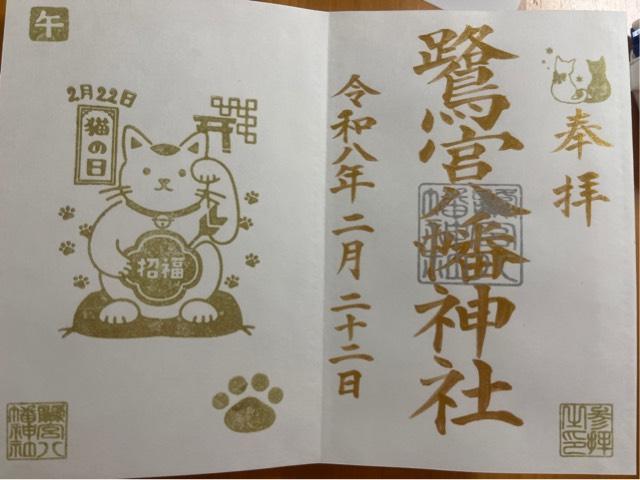 奉拝
鷺宮八幡神社
令和八年二月二十二日
参拝之印
午
2月22日
猫の日
招福
鷺宮八幡神社